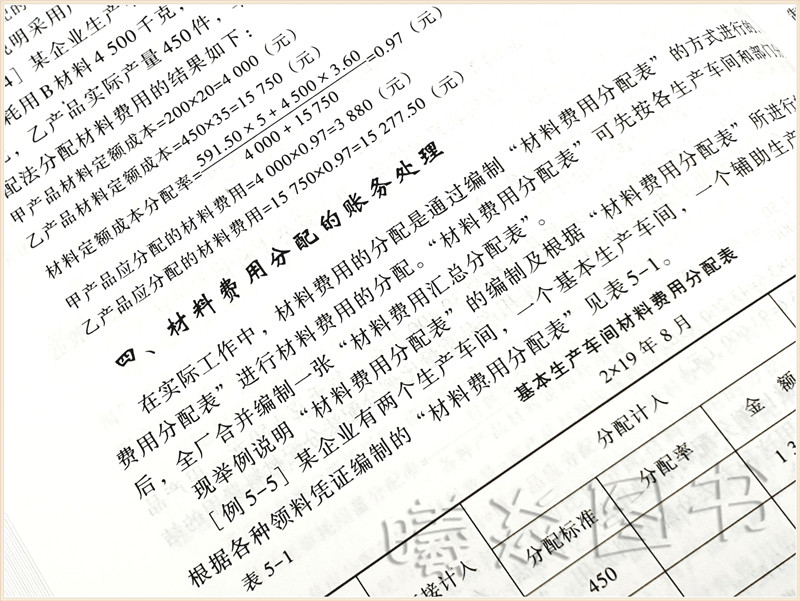 明采用
4］某企业生产
耗用B材料4 500千克，
，乙产品实际产量450件，
配法分配材料费用的结果如下：
甲产品材料定额成本=200×20=4 000（元）
乙产品材料定额成本=450×35=15 750（元）
材料定额成本分配率=591.50×5+4 500×3.60
4 000+15 750
=0.97（元）
甲产品应分配的材料费用=4 000×0.97=3 880（元）
乙产品应分配的材料费用=15 750×0.97=15 277.50（元）
四、材料费用分配的账务处理
在实际工作中，材料费用的分配是通过编制“材料费用分配表”的方式进行的
费用分配表”进行材料费用的分配。“材料费用分配表”可先按各生产车间和部门
后，全厂合并编制一张“材料费用汇总分配表”。
现举例说明“材料费用分配表”的编制及根据“材料费用分配表”所进行
［例5-5］某企业有两个生产车间，一个基本生产车间，一个辅助生产
根据各种领料凭证编制的“材料费用分配表”见表5-1。
表5-1
基本生产车间材料费用分配表
2×19年8月
分配计入
接计入
分配标准
分配率
金额
450
1 3
曦焱图书